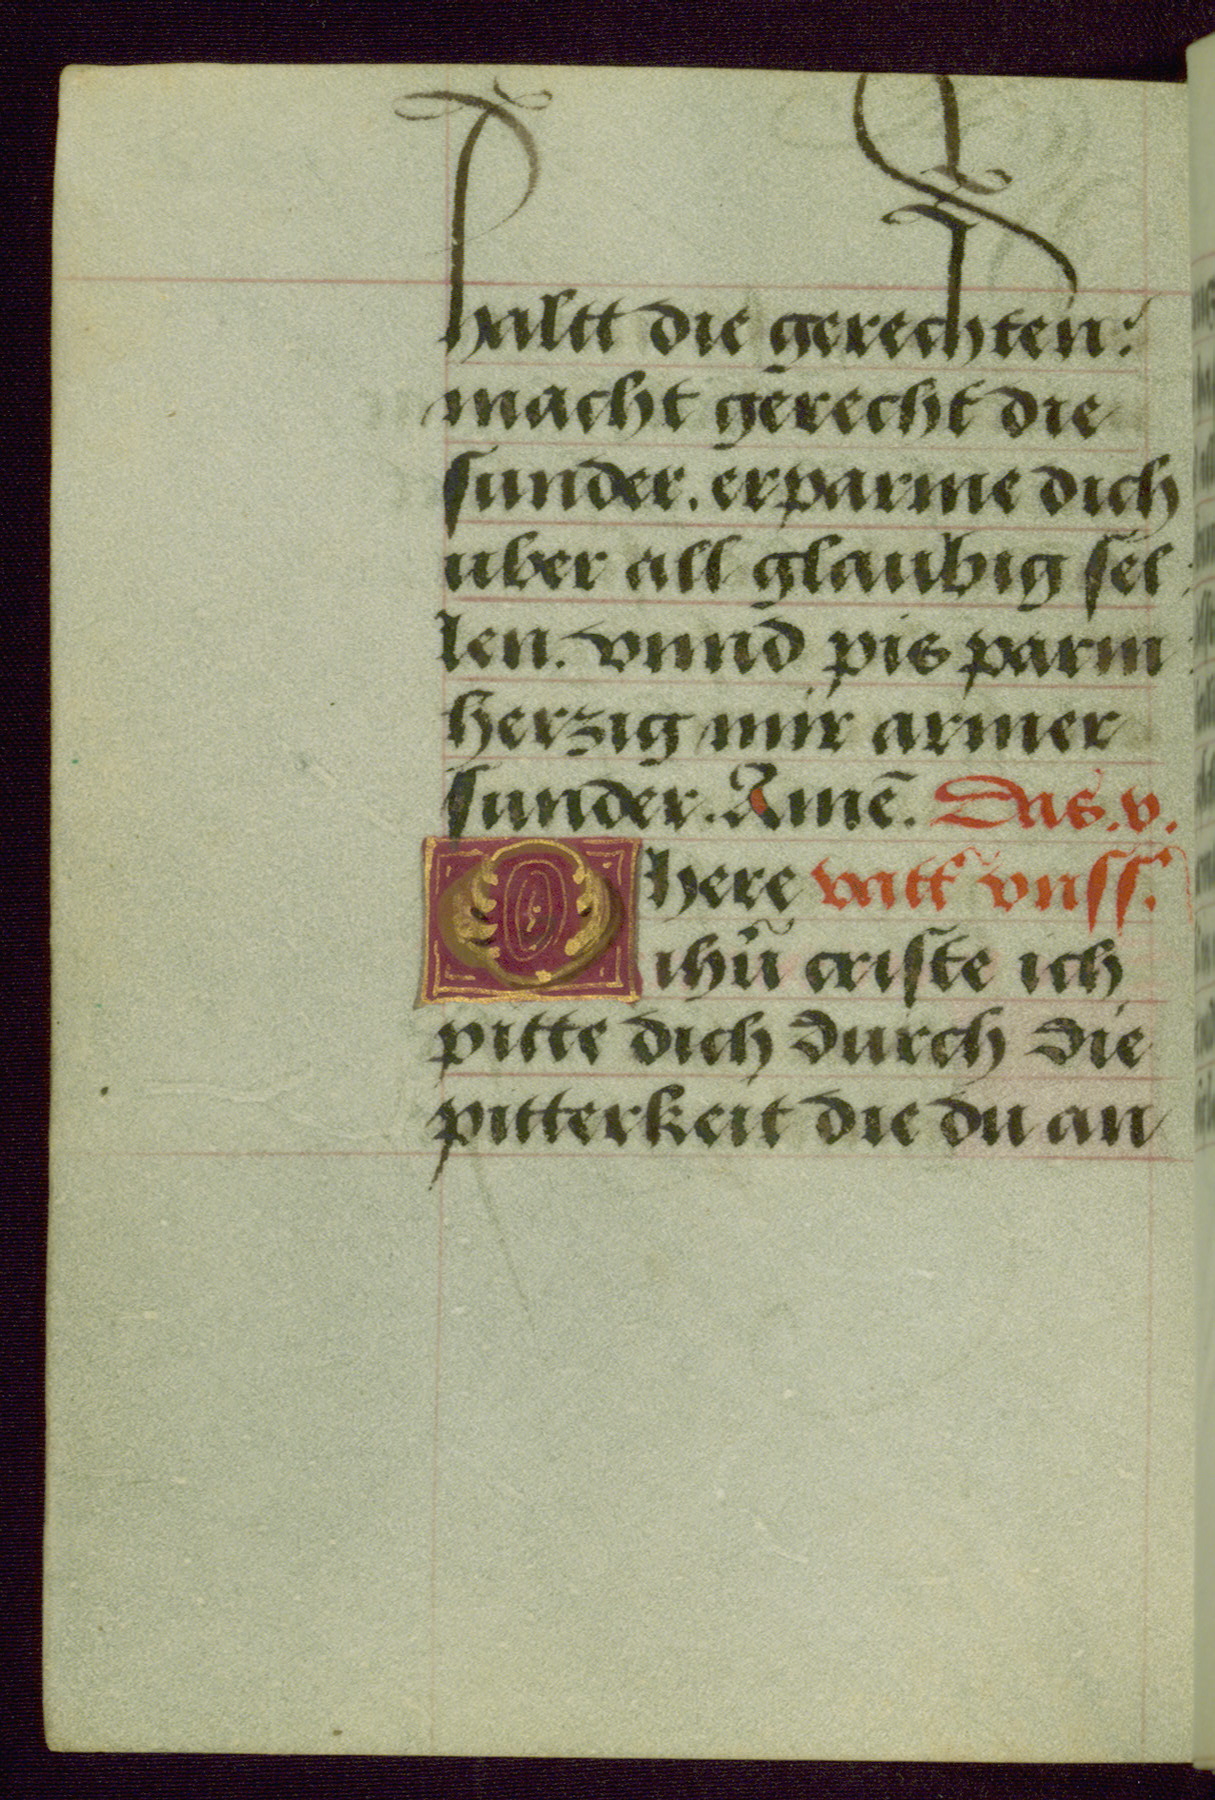 haltt die gerechten:
macht gerecht die
sunder. erparme dich
uber all glaubig sel
len. vnnd pis parm
herzig mir armer
sunder. Amē. Das .v.
O here vatt vnss.
ihū criste ich
pitte dich durch die
pitterkeit die du an